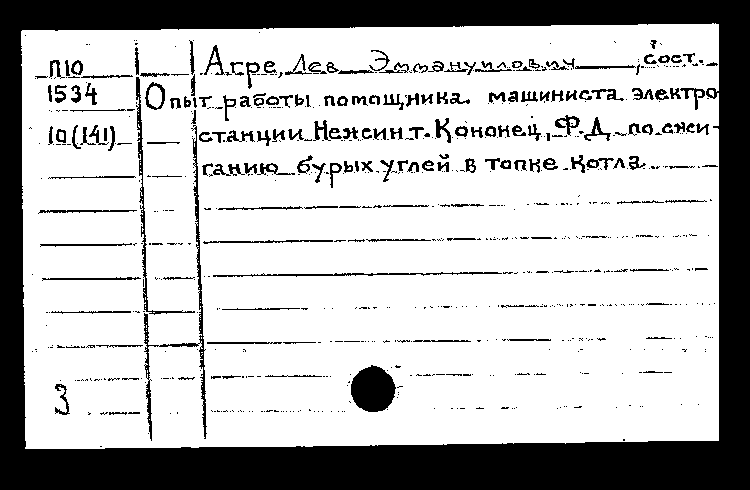 П10 Агре, Лев Эммануилович, сост.
1534 Опыт работы помощника машиниста электро-
10(141) станции Нежсин т. Кононец, Ф.Д. по сжи-
ганию бурых углей в топке котла
3